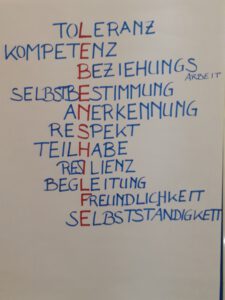 TOLERANZ
KOMPETENZ
BEZIEHUNGS
ARBEIT
SELBSTBESTIMMUNG
ANERKENNUNG
RESPEKT
TEILHABE
RESILIENZ
BEGLEITUNG
FREUNDLICHKEIT
SELBSTSTÄNDIGKEIT